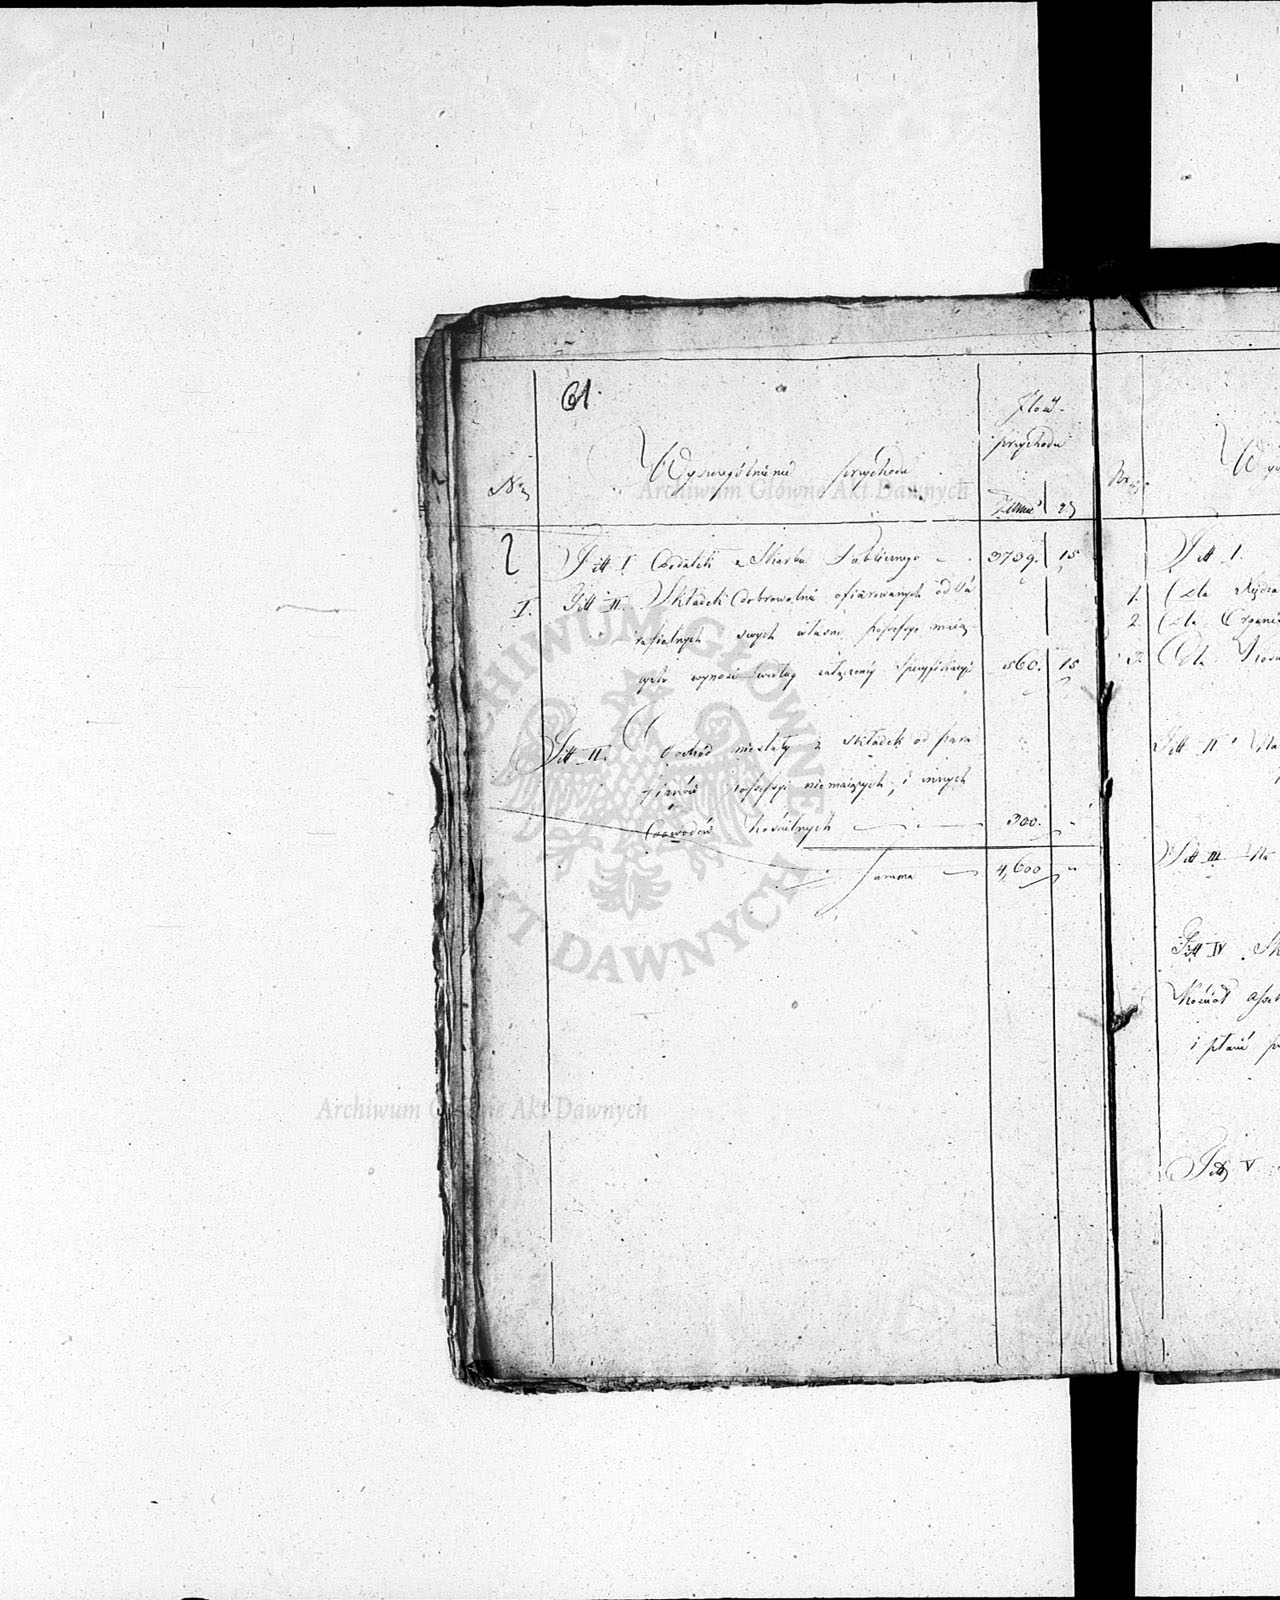 61.
No
Wyszczególnienie przychodu
Ilość
przychodu
2
Titt I. Dodatek z Skarbu Publicznego
3739. 15
I.
Titt II. Składek dobrowolnie ofiarowanych od Pa
rafialnych swych własne possessye maią
cych wynosi według załączoney specyfikacyi
560. 15
Titt III. Dochód niestały z składek od para
fianów possessyi niemaiących, i innych
dowodów kościelnych
300. -
Summa
4,600 -
Nr
Titt I.
1. Dla
2. Dla Organi
3. Dla
Titt II
Titt III Na
Titt IV
Kościół
i
Titt V
Archiwum Główne Akt Dawnych
ARCHIWUM GŁÓWNE AKT DAWNYCH
Archiwum Główne Akt Dawnych